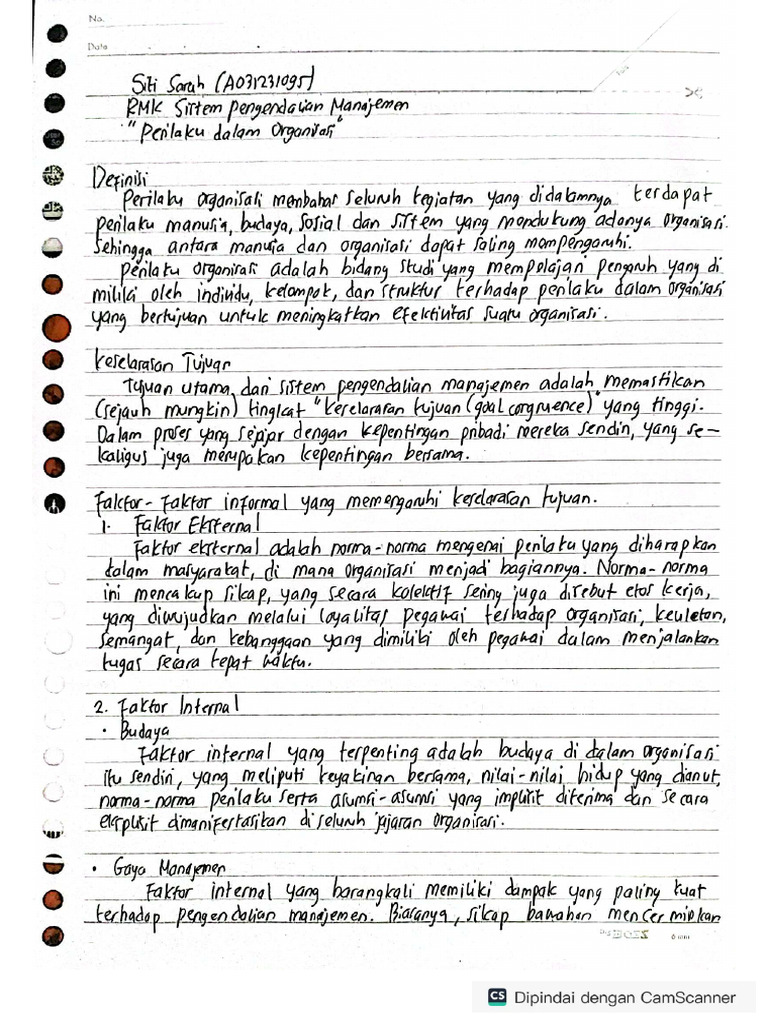 No.
Date
Siti Sarah (A031231095)
RMK Sistem Pengendalian Manajemen
"Perilaku dalam Organisasi"
Definisi
Perilaku organisasi membahas seluruh kegiatan yang didalamnya terdapat
perilaku manusia, budaya, sosial dan sistem yang mendukung adanya organisasi.
Sehingga antara manusia dan organisasi dapat saling mempengaruhi.
Perilaku organisasi adalah bidang studi yang mempelajari pengaruh yang di
miliki oleh individu, kelompok, dan struktur terhadap perilaku dalam organisasi
yang bertujuan untuk meningkatkan efektivitas suatu organisasi.
Keselarasan Tujuan
Tujuan utama dari sistem pengendalian manajemen adalah memastikan
(sejauh mungkin) tingkat "keselarasan tujuan (goal congruence)" yang tinggi.
Dalam proses yang sejajar dengan kepentingan pribadi mereka sendiri, yang se-
kaligus juga merupakan kepentingan bersama.
Faktor-Faktor informal yang memengaruhi keselarasan tujuan.
1. Faktor Eksternal
Faktor eksternal adalah norma-norma mengenai perilaku yang diharapkan
dalam masyarakat, di mana organisasi menjadi bagiannya. Norma-norma
ini mencakup sikap, yang secara kolektif sering juga disebut etos kerja,
yang diwujudkan melalui loyalitas pegawai terhadap organisasi, keuletan,
semangat, dan kebanggaan yang dimiliki oleh pegawai dalam menjalankan
tugas secara tepat waktu.
2. Faktor Internal
• Budaya
Faktor internal yang terpenting adalah budaya di dalam organisasi
itu sendiri, yang meliputi keyakinan bersama, nilai-nilai hidup yang dianut,
norma-norma perilaku serta asumsi-asumsi yang implisit diterima dan secara
eksplisit dimanifestasikan di seluruh jajaran organisasi.
• Gaya Manajemen
Faktor internal yang barangkali memiliki dampak yang paling kuat
terhadap pengendalian manajemen. Biasanya, sikap bawahan mencerminkan
BOSS 6 mm
CS Dipindai dengan CamScanner